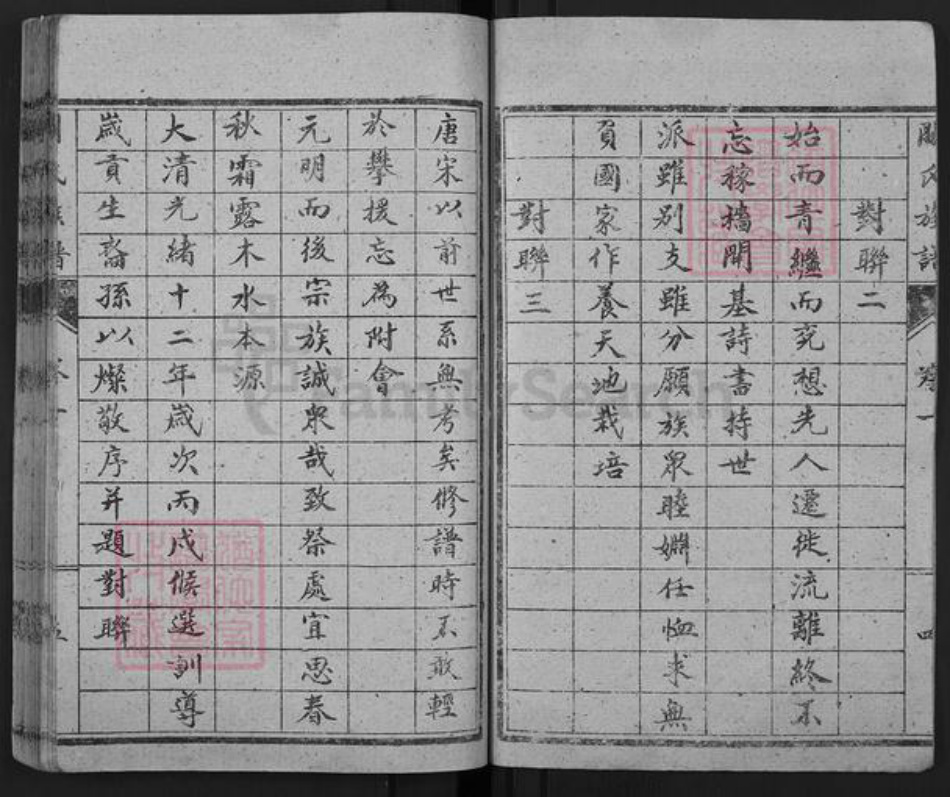 對聯二
始而青繼而兖想先人遷徙流離終不
忘稼穡開基詩書持世
派雖别支雖分願族眾睦婣任恤求無
負國家作養天地栽培
對聯三
唐宋以前世系無考矣修譜時不敢輕
於攀援忘為附會
元明而後宗族誠眾哉致祭處宜思春
秋霜露木水本源
大清光緒十二年歲次丙戌候選訓導
歲貢生裔孫以燦敬序并題對聯
FamilySearch